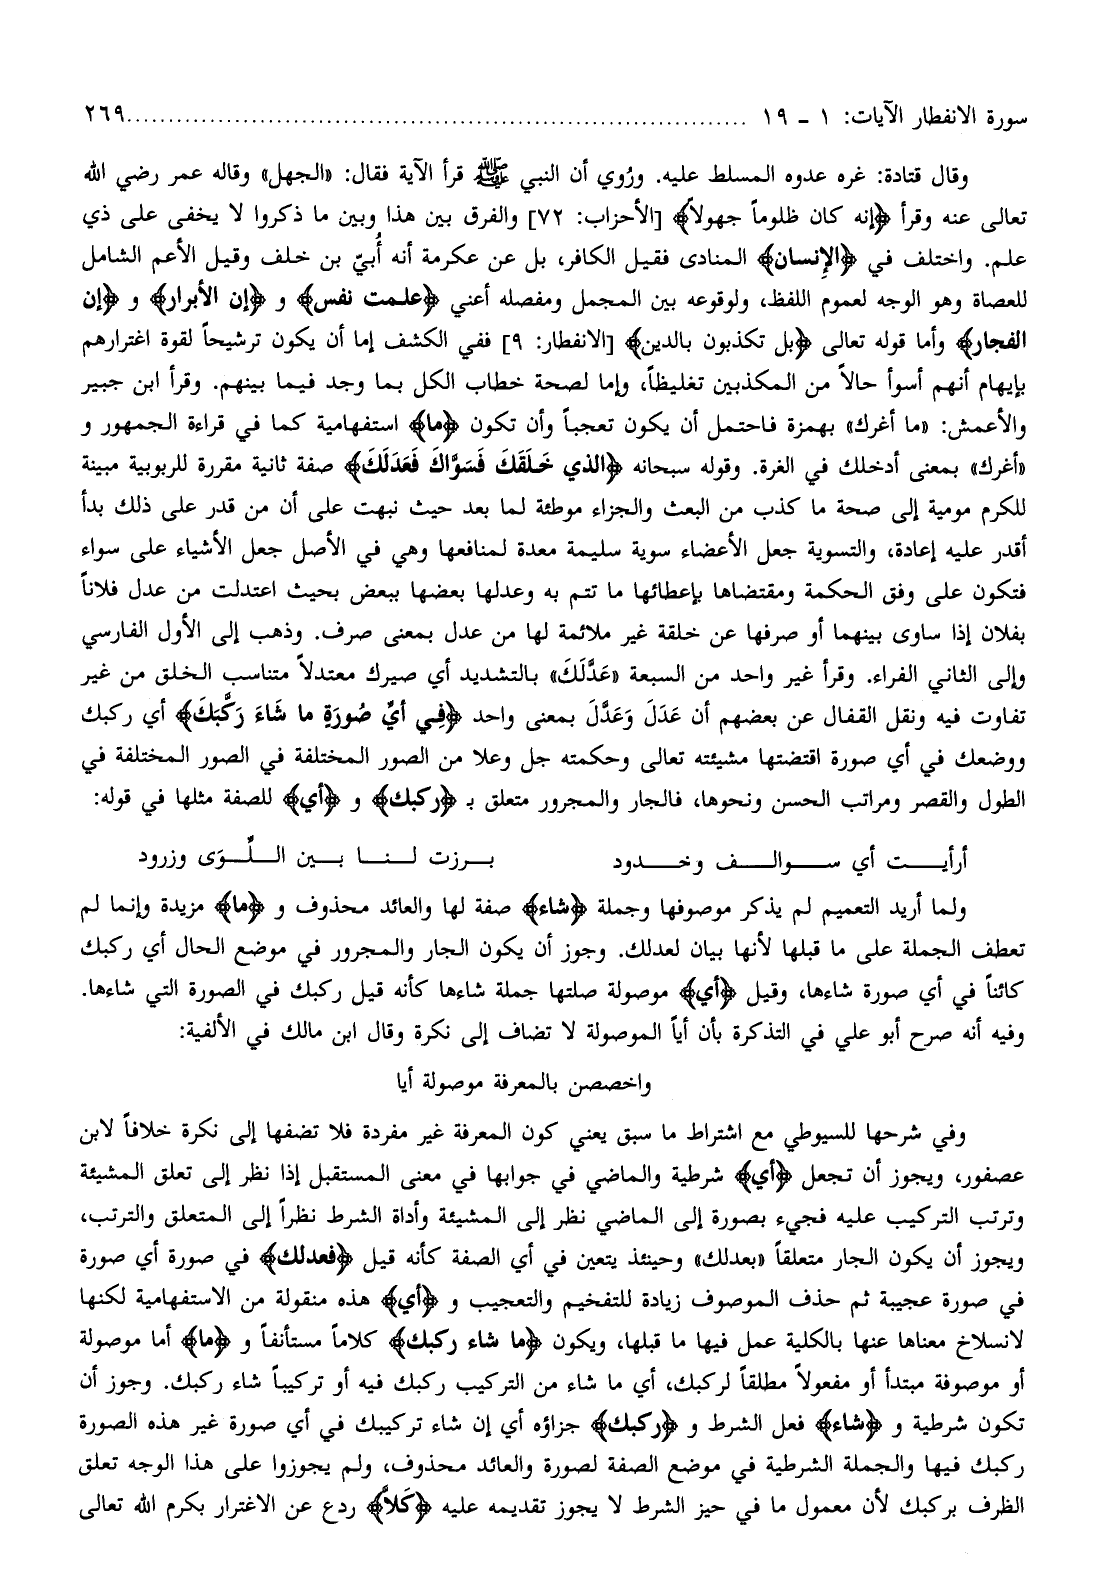 سورة الانفطار الآيات: ١ ـ ١٩ ................................................................ ٢٦٩
وقال قتادة: غره عدوه المسلط عليه. ورُوي أن النبي ﷺ قرأ الآية فقال: «الجهل» وقاله عمر رضي الله
تعالى عنه وقرأ ﴿إنه كان ظلوماً جهولاً﴾ [الأحزاب: ٧٢] والفرق بين هذا وبين ما ذكروا لا يخفى على ذي
علم. واختلف في ﴿الإِنسان﴾ المنادى فقيل الكافر، بل عن عكرمة أنه أُبيّ بن خلف وقيل الأعم الشامل
للعصاة وهو الوجه لعموم اللفظ، ولوقوعه بين المجمل ومفصله أعني ﴿علمت نفس﴾ و ﴿إن الأبرار﴾ و ﴿إن
الفجار﴾ وأما قوله تعالى ﴿بل تكذبون بالدين﴾ [الانفطار: ٩] ففي الكشف إما أن يكون ترشيحاً لقوة اغترارهم
بإيهام أنهم أسوأ حالاً من المكذبين تغليظاً، وإما لصحة خطاب الكل بما وجد فيما بينهم. وقرأ ابن جبير
والأعمش: «ما أغرك» بهمزة فاحتمل أن يكون تعجباً وأن تكون ﴿ما﴾ استفهامية كما في قراءة الجمهور و
«أغرك» بمعنى أدخلك في الغرة. وقوله سبحانه ﴿الذي خَلَقَكَ فَسَوَّاكَ فَعَدَلَكَ﴾ صفة ثانية مقررة للربوبية مبينة
للكرم مومية إلى صحة ما كذب من البعث والجزاء موطئة لما بعد حيث نبهت على أن من قدر على ذلك بدأ
أقدر عليه إعادة، والتسوية جعل الأعضاء سوية سليمة معدة لمنافعها وهي في الأصل جعل الأشياء على سواء
فتكون على وفق الحكمة ومقتضاها بإعطائها ما تتم به وعدلها بعضها ببعض بحيث اعتدلت من عدل فلاناً
بفلان إذا ساوى بينهما أو صرفها عن خلقة غير ملائمة لها من عدل بمعنى صرف. وذهب إلى الأول الفارسي
وإلى الثاني الفراء. وقرأ غير واحد من السبعة «عَدَّلَكَ» بالتشديد أي صيرك معتدلاً متناسب الخلق من غير
تفاوت فيه ونقل القفال عن بعضهم أن عَدَلَ وَعَدَّلَ بمعنى واحد ﴿فِي أيِّ صُورَةٍ ما شَاءَ رَكَّبَكَ﴾ أي ركبك
ووضعك في أي صورة اقتضتها مشيئته تعالى وحكمته جل وعلا من الصور المختلفة في الصور المختلفة في
الطول والقصر ومراتب الحسن ونحوها، فالجار والمجرور متعلق بـ ﴿ركبك﴾ و ﴿أي﴾ للصفة مثلها في قوله:
أرأيت أي سوالف وخدود برزت لنا بين اللِّوَى وزرود
ولما أريد التعميم لم يذكر موصوفها وجملة ﴿شاء﴾ صفة لها والعائد محذوف و ﴿ما﴾ مزيدة وإنما لم
تعطف الجملة على ما قبلها لأنها بيان لعدلك. وجوز أن يكون الجار والمجرور في موضع الحال أي ركبك
كائناً في أي صورة شاءها، وقيل ﴿أي﴾ موصولة صلتها جملة شاءها كأنه قيل ركبك في الصورة التي شاءها.
وفيه أنه صرح أبو علي في التذكرة بأن أياً الموصولة لا تضاف إلى نكرة وقال ابن مالك في الألفية:
واخصصن بالمعرفة موصولة أيا
وفي شرحها للسيوطي مع اشتراط ما سبق يعني كون المعرفة غير مفردة فلا تضفها إلى نكرة خلافاً لابن
عصفور، ويجوز أن تجعل ﴿أي﴾ شرطية والماضي في جوابها في معنى المستقبل إذا نظر إلى تعلق المشيئة
وترتب التركيب عليه فجيء بصورة إلى الماضي نظر إلى المشيئة وأداة الشرط نظراً إلى المتعلق والترتب،
ويجوز أن يكون الجار متعلقاً «بعدلك» وحينئذ يتعين في أي الصفة كأنه قيل ﴿فعدلك﴾ في صورة أي صورة
في صورة عجيبة ثم حذف الموصوف زيادة للتفخيم والتعجيب و ﴿أي﴾ هذه منقولة من الاستفهامية لكنها
لانسلاخ معناها عنها بالكلية عمل فيها ما قبلها، ويكون ﴿ما شاء ركبك﴾ كلاماً مستأنفاً و ﴿ما﴾ أما موصولة
أو موصوفة مبتدأ أو مفعولاً مطلقاً لركبك، أي ما شاء من التركيب ركبك فيه أو تركيباً شاء ركبك. وجوز أن
تكون شرطية و ﴿شاء﴾ فعل الشرط و ﴿ركبك﴾ جزاؤه أي إن شاء تركيبك في أي صورة غير هذه الصورة
ركبك فيها والجملة الشرطية في موضع الصفة لصورة والعائد محذوف، ولم يجوزوا على هذا الوجه تعلق
الظرف بركبك لأن معمول ما في حيز الشرط لا يجوز تقديمه عليه ﴿كَلاَّ﴾ ردع عن الاغترار بكرم الله تعالى